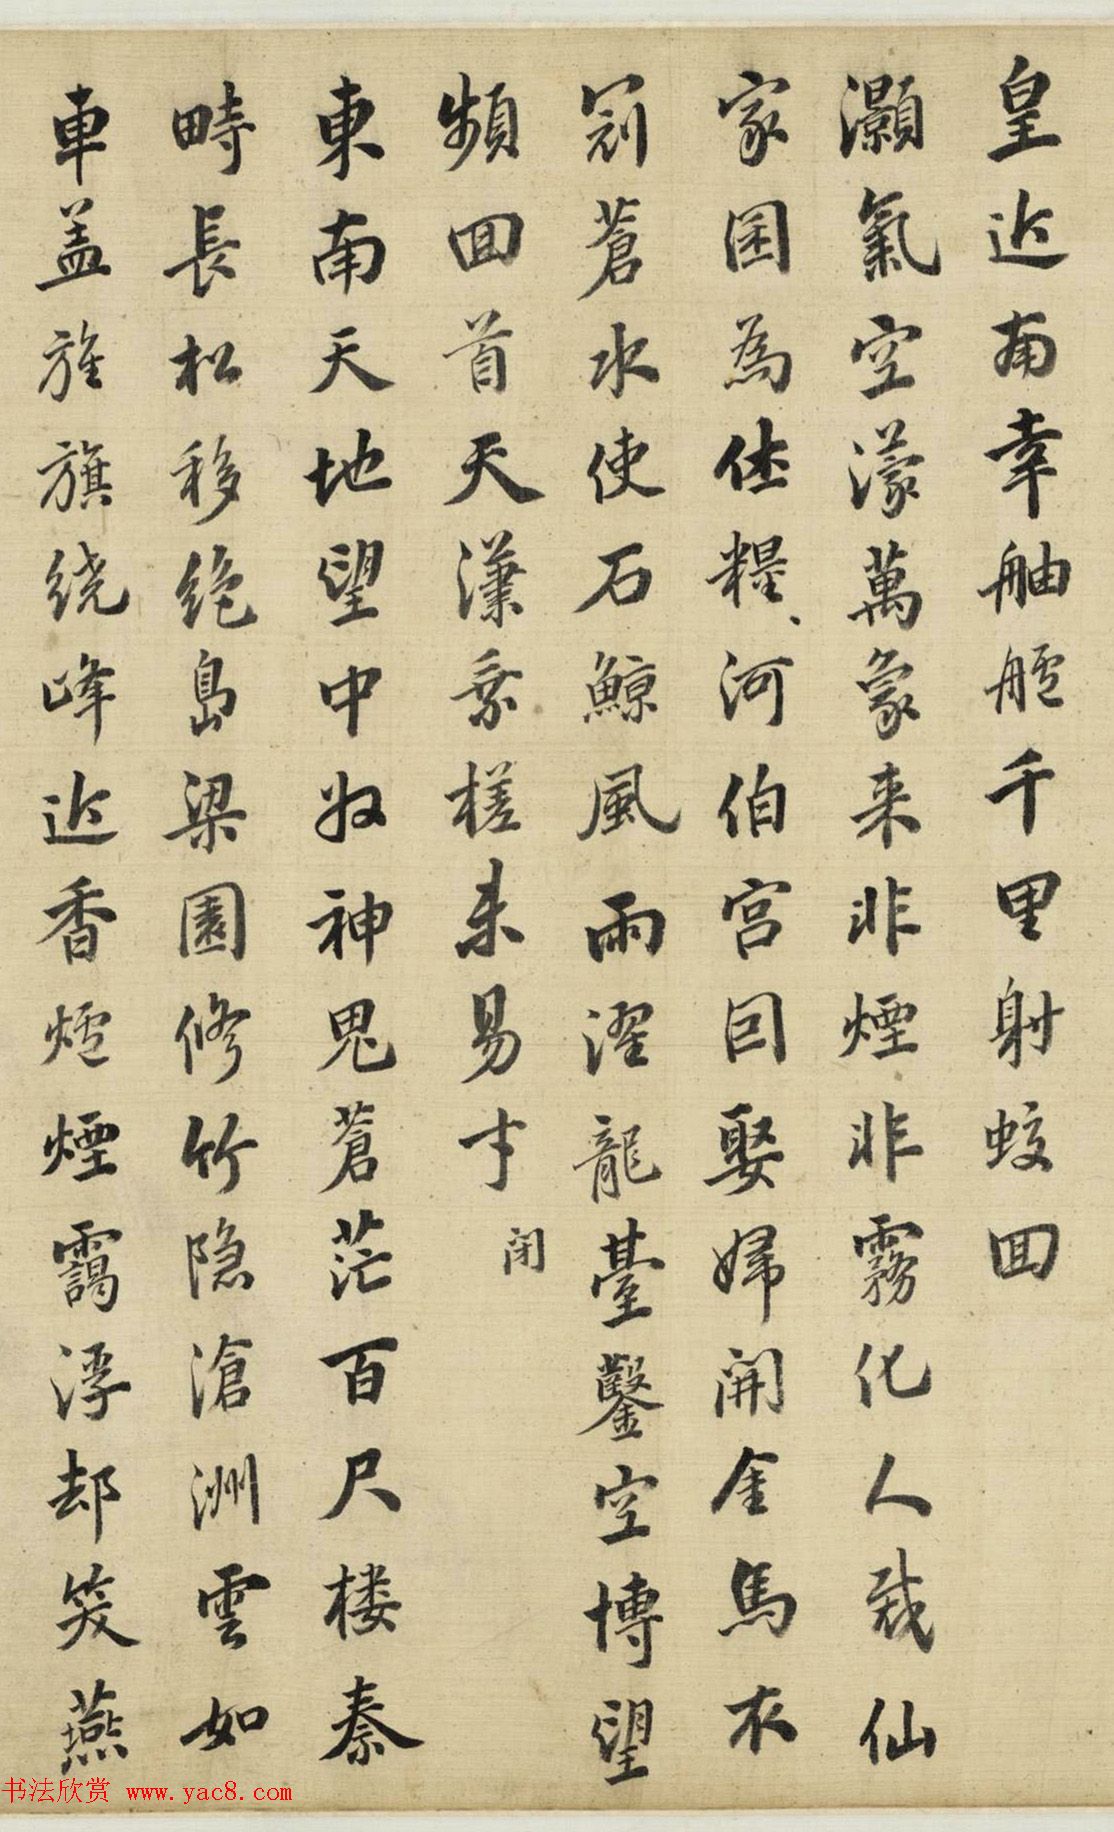 皇近南幸舳艫千里射蛟回
灝氣空濛萬象来非煙非霧化人㦲仙
家困為佐糧河伯宫因娶婦開金馬衣
冠蒼水使石鯨風雨濯龍臺鑿空博望
頻回首天漢乗槎未易才
閑
東南天地望中収神鬼蒼茫百尺楼秦
畤長松移絶島梁園修竹隐滄洲雲如
車盖旌旗绕峰近香爐煙靄浮却笑燕
书法欣赏 www.yac8.com